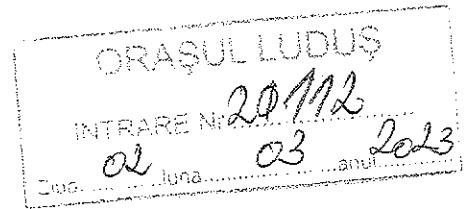 ORAȘUL LUDUȘ
INTRARE Nr. 20112
Ziua 02 luna 03 anul 2023